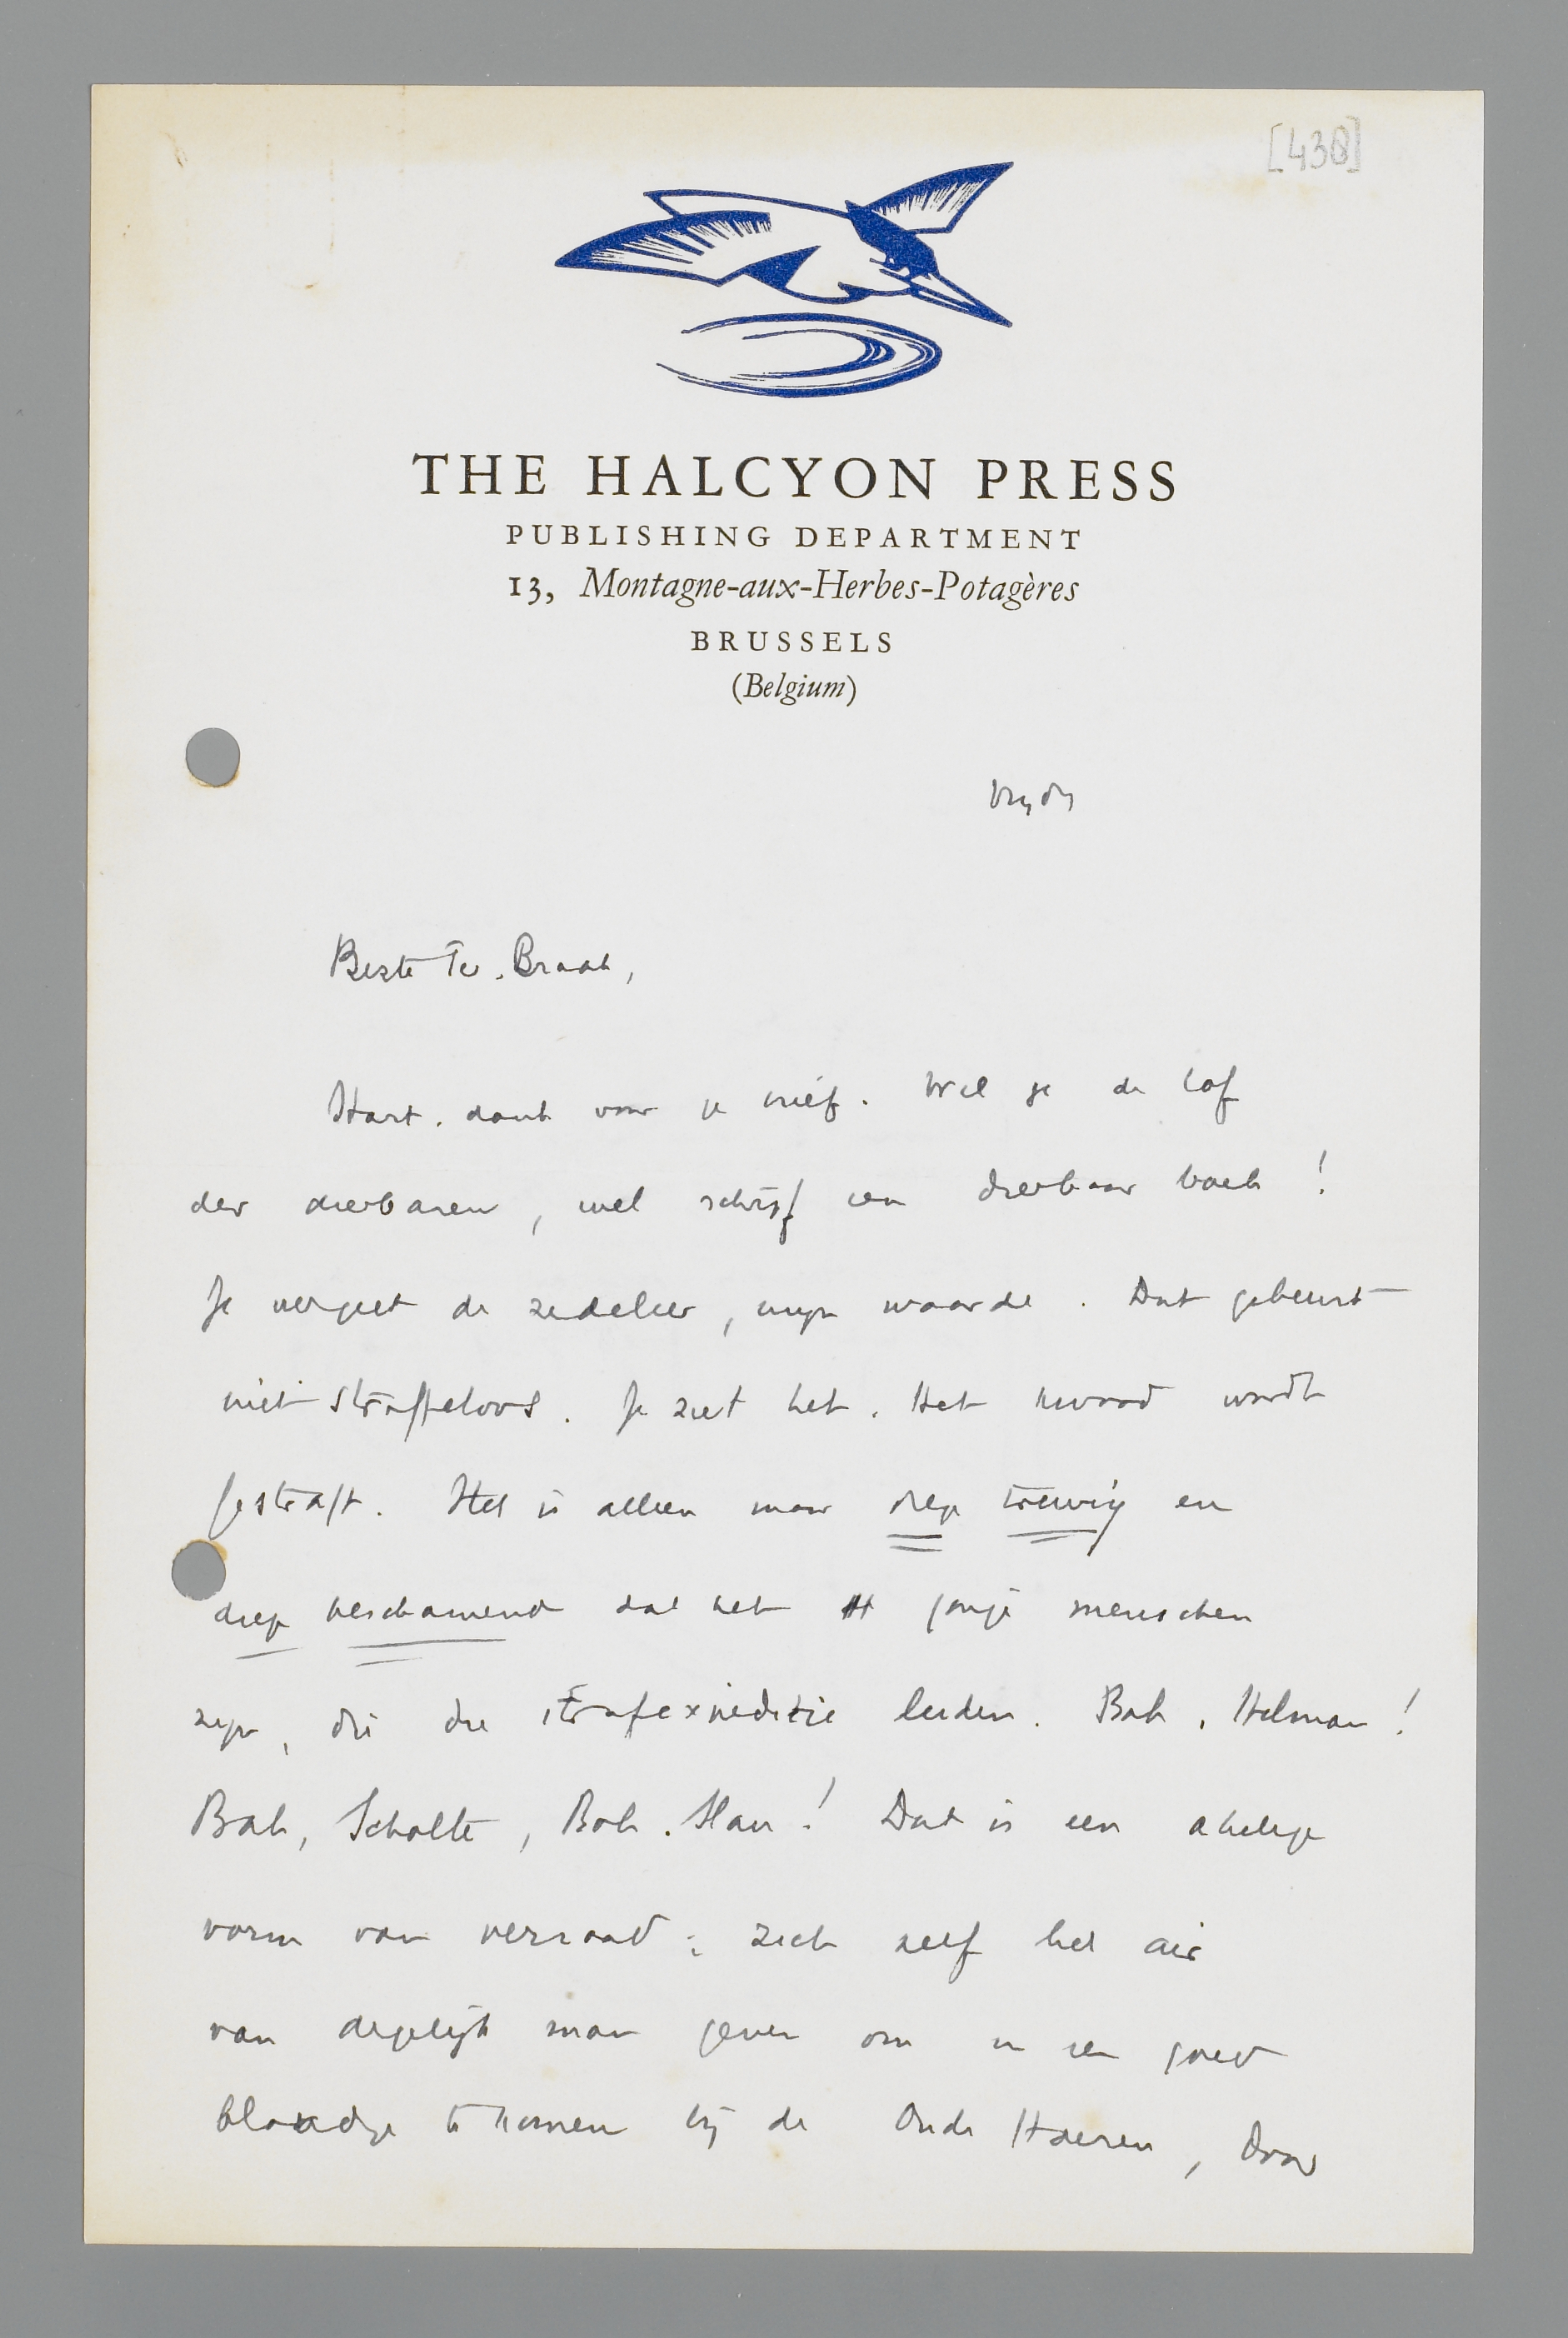 [438]
THE HALCYON PRESS
PUBLISHING DEPARTMENT
13, Montagne-aux-Herbes-Potagères
BRUSSELS
(Belgium)
Vrijdg
Beste Ter Braak,
Hart. dank voor je brief. Wil je de lof
der dierbaren, wel schrijf een dierbaar boek!
Je vergeet de zedeleer, mijn waarde. Dat gebeurt
niet straffeloos. Je ziet het. Het kwaad wordt
gestraft. Het is alleen maar diep treurig en
diep beschamend dat het jonge menschen
zijn, die die strafexpeditie leiden. Bah, Helman!
Bah, Scholte, Bah. Han! Dat is een akelige
vorm van verraad: zich zelf het air
van degelijk man geven om in een goed
blaadje te komen bij de Oude Haeren, door